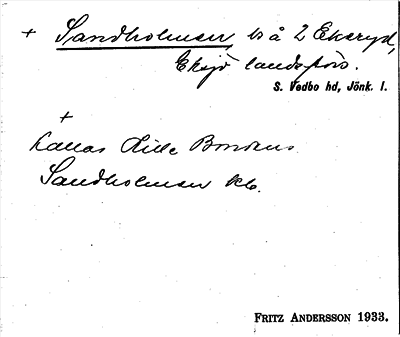 + Sandholmen, ls å 2 Ekeryd,
Eksjö landsförs.
S. Vedbo hd, Jönk. l.
+
Kallas Lilla
Sandholmen kb.
FRITZ ANDERSSON 1933.